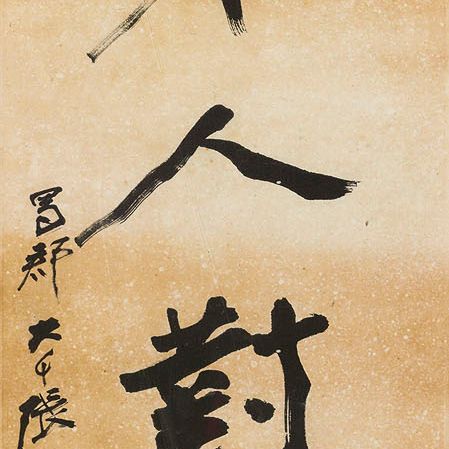 人對
蜀郡大千張